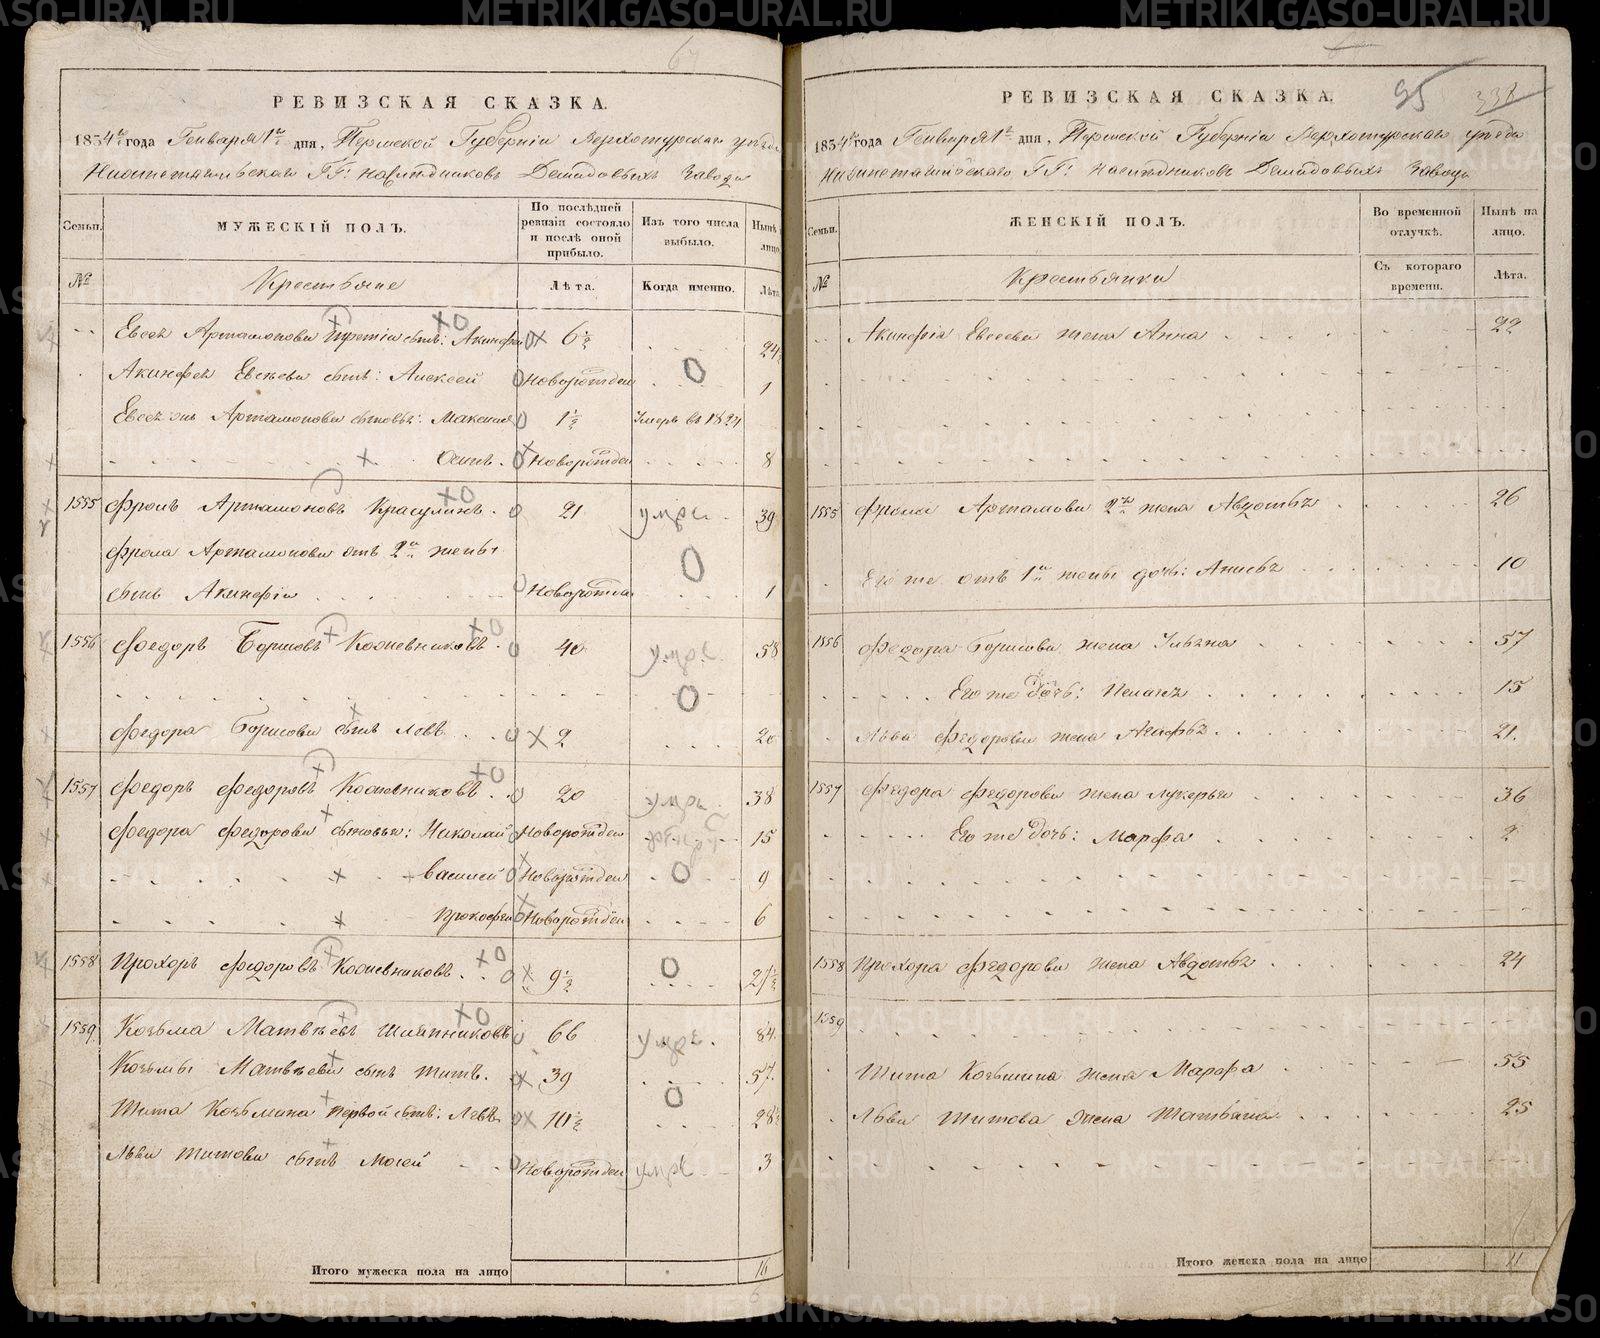 РЕВИЗСКАЯ СКАЗКА.
1834 года Генваря 1 дня, Пермской Губерніи Верхотурскаго уѣзда
Нижнетагильскаго ГГ: наслѣдниковъ Демидовыхъ завода
Семьи.
МУЖЕСКІЙ ПОЛЪ.
По послѣдней ревизіи состояло и послѣ оной прибыло.
Изъ того числа выбыло.
Нынѣ на лицо.
№
Крестьяне
Лѣта.
Когда именно.
Лѣта
Евсея Артамонова третій сынъ: Акинфей 6½ 24½
Акинфея Евсѣева сынъ: Алексей Новорожден 1
Евсея Артамонова сыновья: Максимъ 1½ Умеръ въ 1824
Осипъ. Новорожден 8
1555 Фролъ Артамоновъ Красулинъ. 21 умре 39
Фрола Артамонова отъ 2й жены
сынъ Акинфій Новорожден 1
1556 Федоръ Борисовъ Кожевниковъ. 40 умре. 58
Федора Борисова сынъ Левъ 2 20
1557 Федоръ Федоровъ Кожевниковъ. 20 умре 38
Федора Федорова сыновья: Николай Новорожден 15
Василей Новорожден 9
Прокофей Новорожден 6
1558 Прохоръ Федоровъ Кожевниковъ. 9½ 27½
1559 Козьма Матвѣевъ Шляпниковъ 66 умре. 84
Козьмы Матвѣева сынъ Титъ. 39 57
Тита Козьмина первой сынъ: Левъ 10½ 28½
Льва Титова сынъ Мосей Новорожден умре 3
Итого мужеска пола на лицо 16
РЕВИЗСКАЯ СКАЗКА.
95
338
1834 года Генваря 1 дня, Пермской Губерніи Верхотурскаго уѣзда
Нижнетагильскаго ГГ: наслѣдниковъ Демидовыхъ завода
Семьи.
ЖЕНСКІЙ ПОЛЪ.
Во временной отлучкѣ.
Нынѣ на лицо.
№
Крестьянки
Съ котораго времени.
Лѣта.
Акинфія Евсеева жена Анна 22
1555 Фрола Артамова 2я жена Авдотья 26
Его же отъ 1й жены дочь: Анисья 10
1556 Федора Борисова жена Ульяна 57
Его же дочь: Пелагея 15
Льва Федорова жена Агафья 21.
1557 Федора Федорова жена Лукерья 36
Его же дочь: Марфа 2
1558 Прохора Федорова жена Авдотья 24
1559
Тита Козьмина жена Марфа 55
Льва Титова жена Татьяна 25
Итого женска пола на лицо 11
METRIKI.GASO-URAL.RU